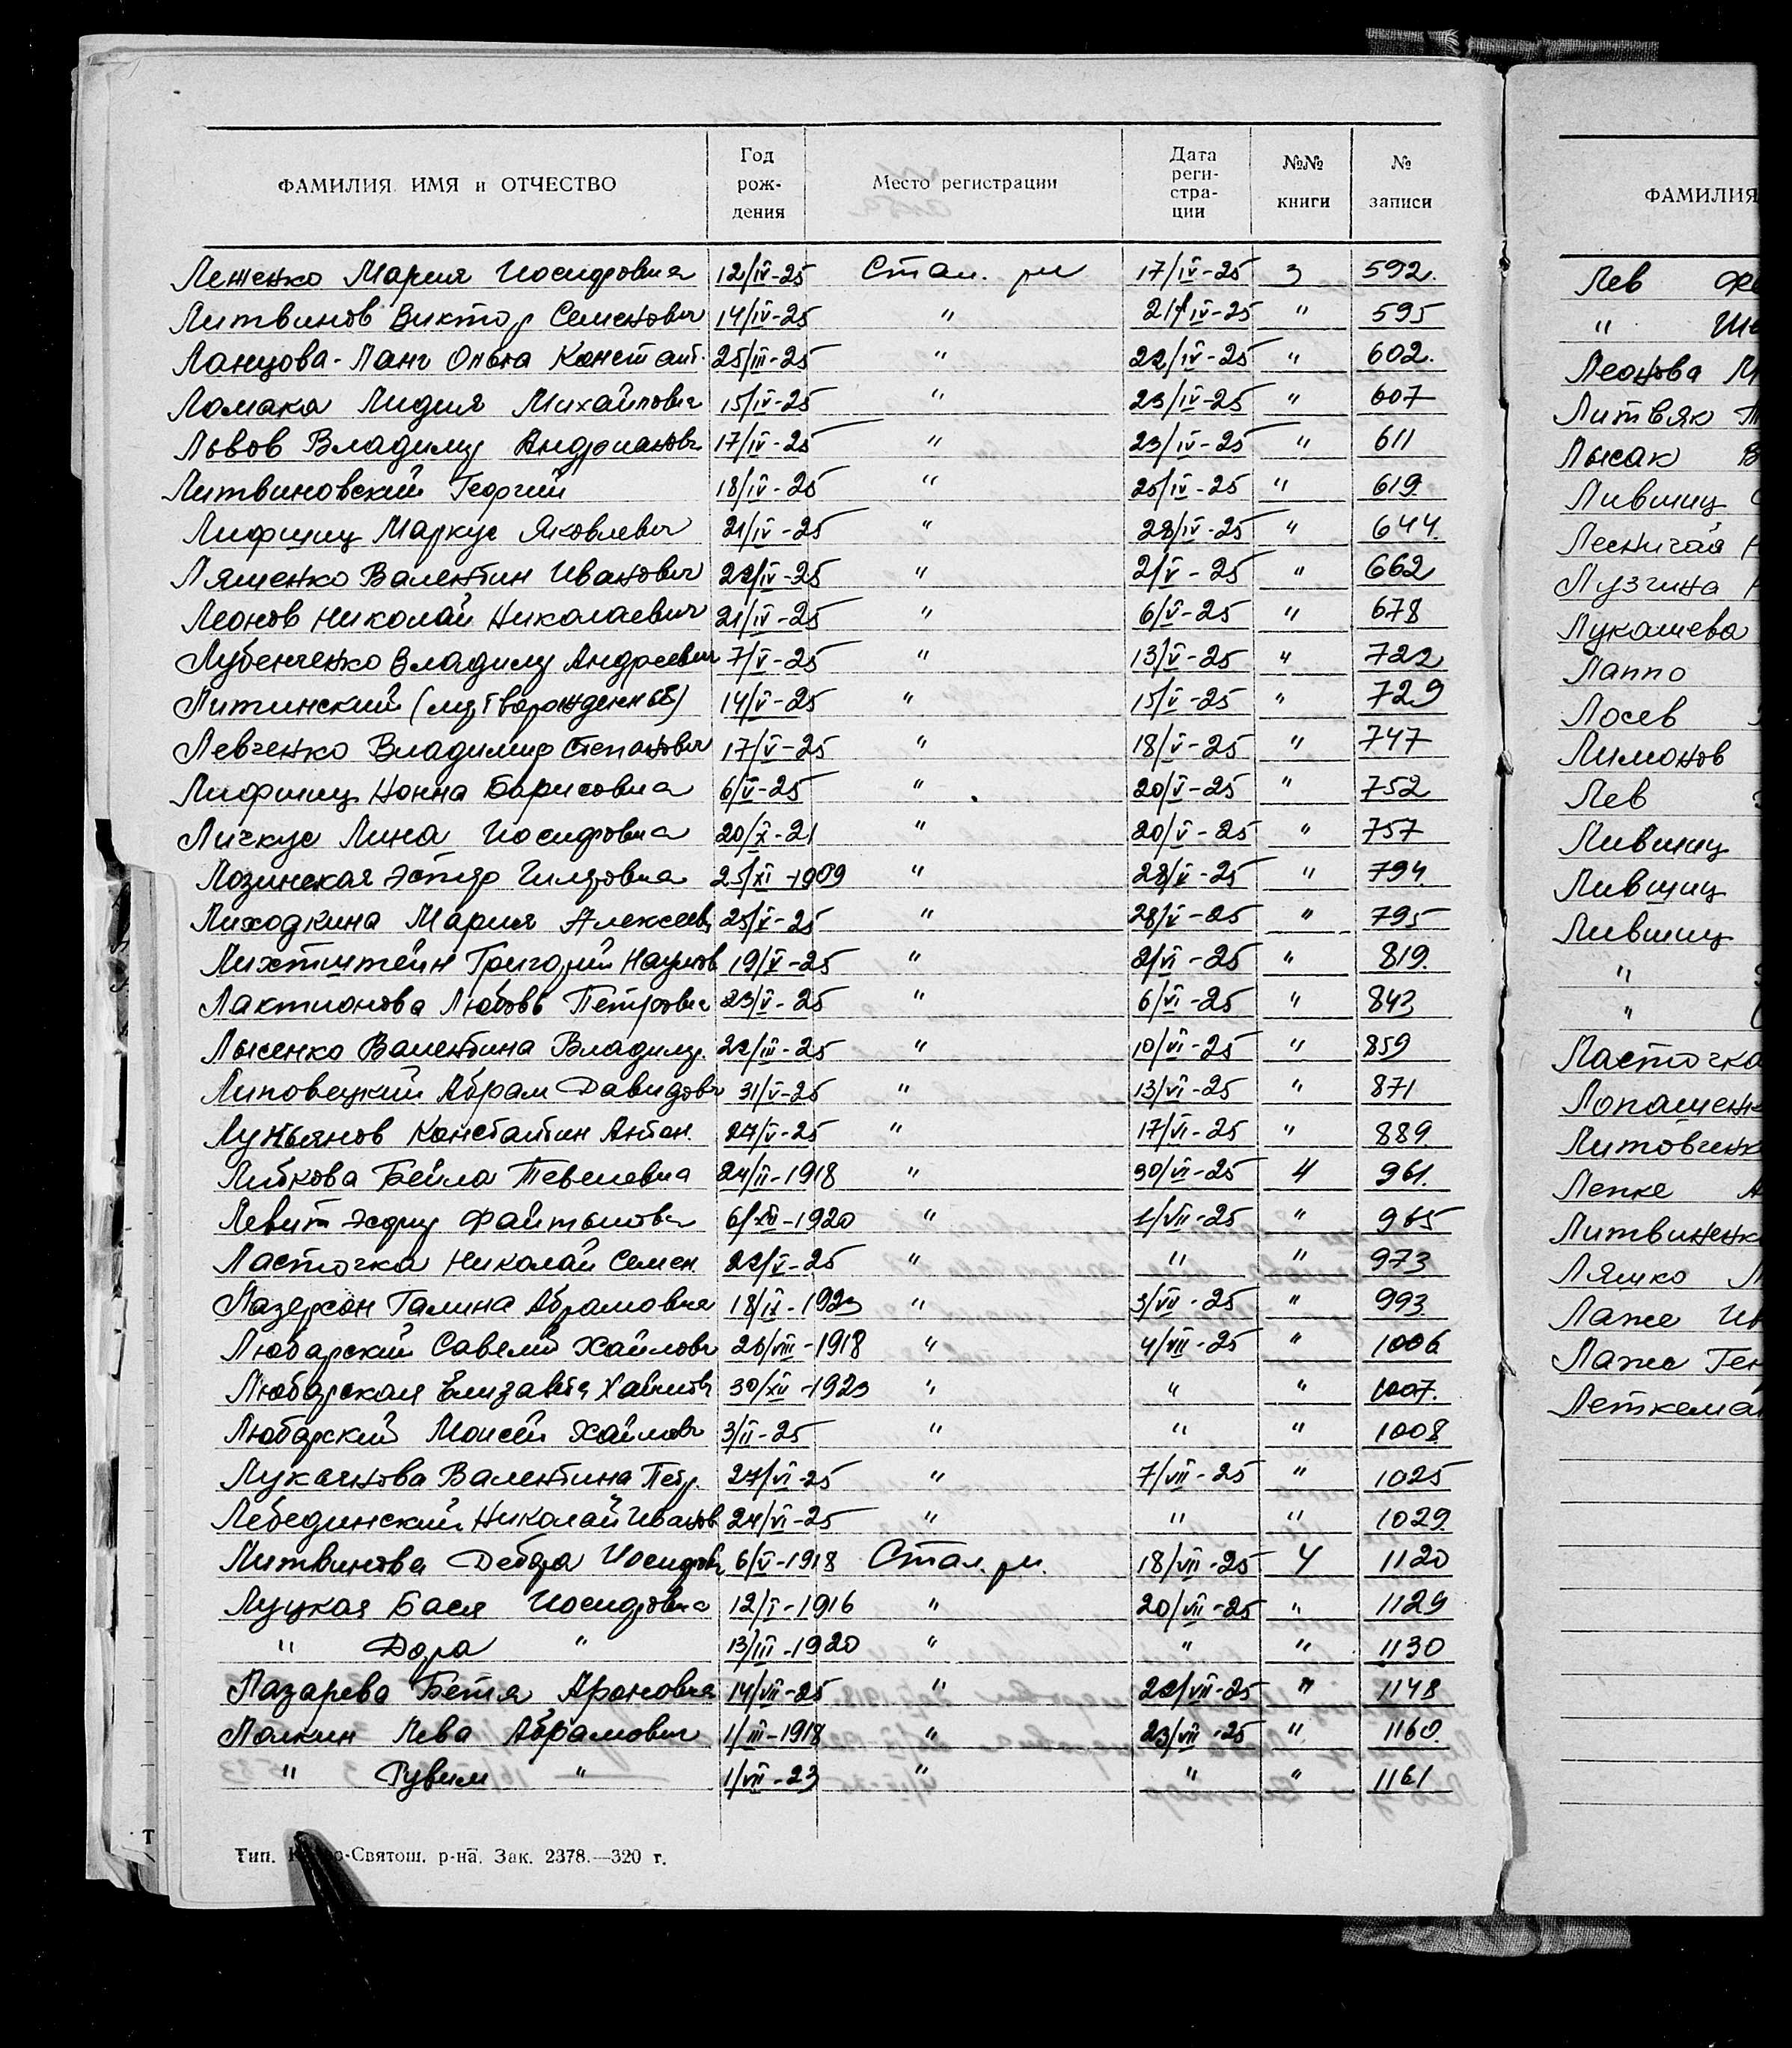 ФАМИЛИЯ ИМЯ и ОТЧЕСТВО | Год рождения | Место регистрации | Дата регистрации | №№ книги | № записи
Леженко Мария Иосифовна 12/IV-25 Стал. рн 17/IV-25 3 592.
Литвинов Виктор Семенович 14/IV-25 " 21/IV-25 " 595
Ланцова-Ланг Ольга Констант. 25/III-25 " 22/IV-25 " 602.
Ломака Лидия Михайловна 15/IV-25 " 23/IV-25 " 607
Львов Владимир Андрианович 17/IV-25 " 23/IV-25 " 611
Литвиновский Георгий 18/IV-25 " 25/IV-25 " 619.
Лифшиц Маркус Яковлевич 21/IV-25 " 28/IV-25 " 644.
Ляшенко Валентин Иванович 22/IV-25 " 2/V-25 " 662
Леонов Николай Николаевич 21/IV-25 " 6/V-25 " 678
Лубенченко Владимир Андреевич 7/V-25 " 13/V-25 " 722
Литинский (мертворожденный) 14/V-25 " 15/V-25 " 729
Левченко Владимир Степанович 17/V-25 " 18/V-25 " 747
Лифшиц Нонна Борисовна 6/V-25 " 20/V-25 " 752
Личкус Лина Иосифовна 20/X-21 " 20/V-25 " 757
Лозинская Эстер 25/XI-1909 " 28/V-25 " 794.
Лиходкина Мария Алексеев 25/V-25 " 28/V-25 " 795
Лихтштейн Григорий Наумов 19/V-25 " 2/VI-25 " 819.
Лактионова Любовь Петровна 23/V-25 " 6/VI-25 " 843
Лысенко Валентина Владимир. 22/III-25 " 10/VI-25 " 859
Липовецкий Абрам Давидович 31/V-25 " 13/VI-25 " 871
Лукьянов Константин Антон. 27/V-25 " 17/VI-25 " 889.
Либкова Бейла Тевелевна 24/II-1918 " 30/VI-25 4 961.
Левит Эсфир Файтыловна 6/XII-1920 " 1/VII-25 " 965
Ласточка Николай Семен. 22/V-25 " " " 973.
Лазерсон Галина Абрамовна 18/IX-1923 " 3/VII-25 " 993.
Любарский Савелий Хаимович 26/VIII-1918 " 4/VII-25 " 1006
Любарская Елизавета Хаимов 30/XII-1923 " " " 1007.
Любарский Моисей Хаимович 3/II-25 " " " 1008.
Лукьянова Валентина Петр. 27/VI-25 " 7/VII-25 " 1025
Лебединский Николай Иванов 24/VI-25 " " " 1029.
Литвинова Дебора Иосифов 6/V-1918 Стал. рн. 18/VII-25 4 1120
Луцкая Бася Иосифовна 12/I-1916 " 20/VII-25 " 1129
" Дора " 13/III-1920 " " " 1130
Лазарева Бетя Ароновна 14/VII-25 " 22/VII-25 " 1148
Лоикин Лева Абрамович 1/III-1918 " 23/VII-25 " 1160.
" Рувим " 1/VII-23 " " " 1161
Тип. -Святош. р-на. Зак. 2378.—320 т.
ФАМИЛИЯ
Лев Фе
" Ше
Леонова М
Литвяк Т
Лысак В
Лившиц
Леснигая
Лузгина
Лукашева
Лаппо
Лосев
Лимонов
Лев
Лившиц
Лившиц
Лившиц
"
"
Ласточка
Лопашенк
Литовченк
Лепке
Литвиненк
Ляшко
Лаже Ив
Лаже Ген
Леткеман